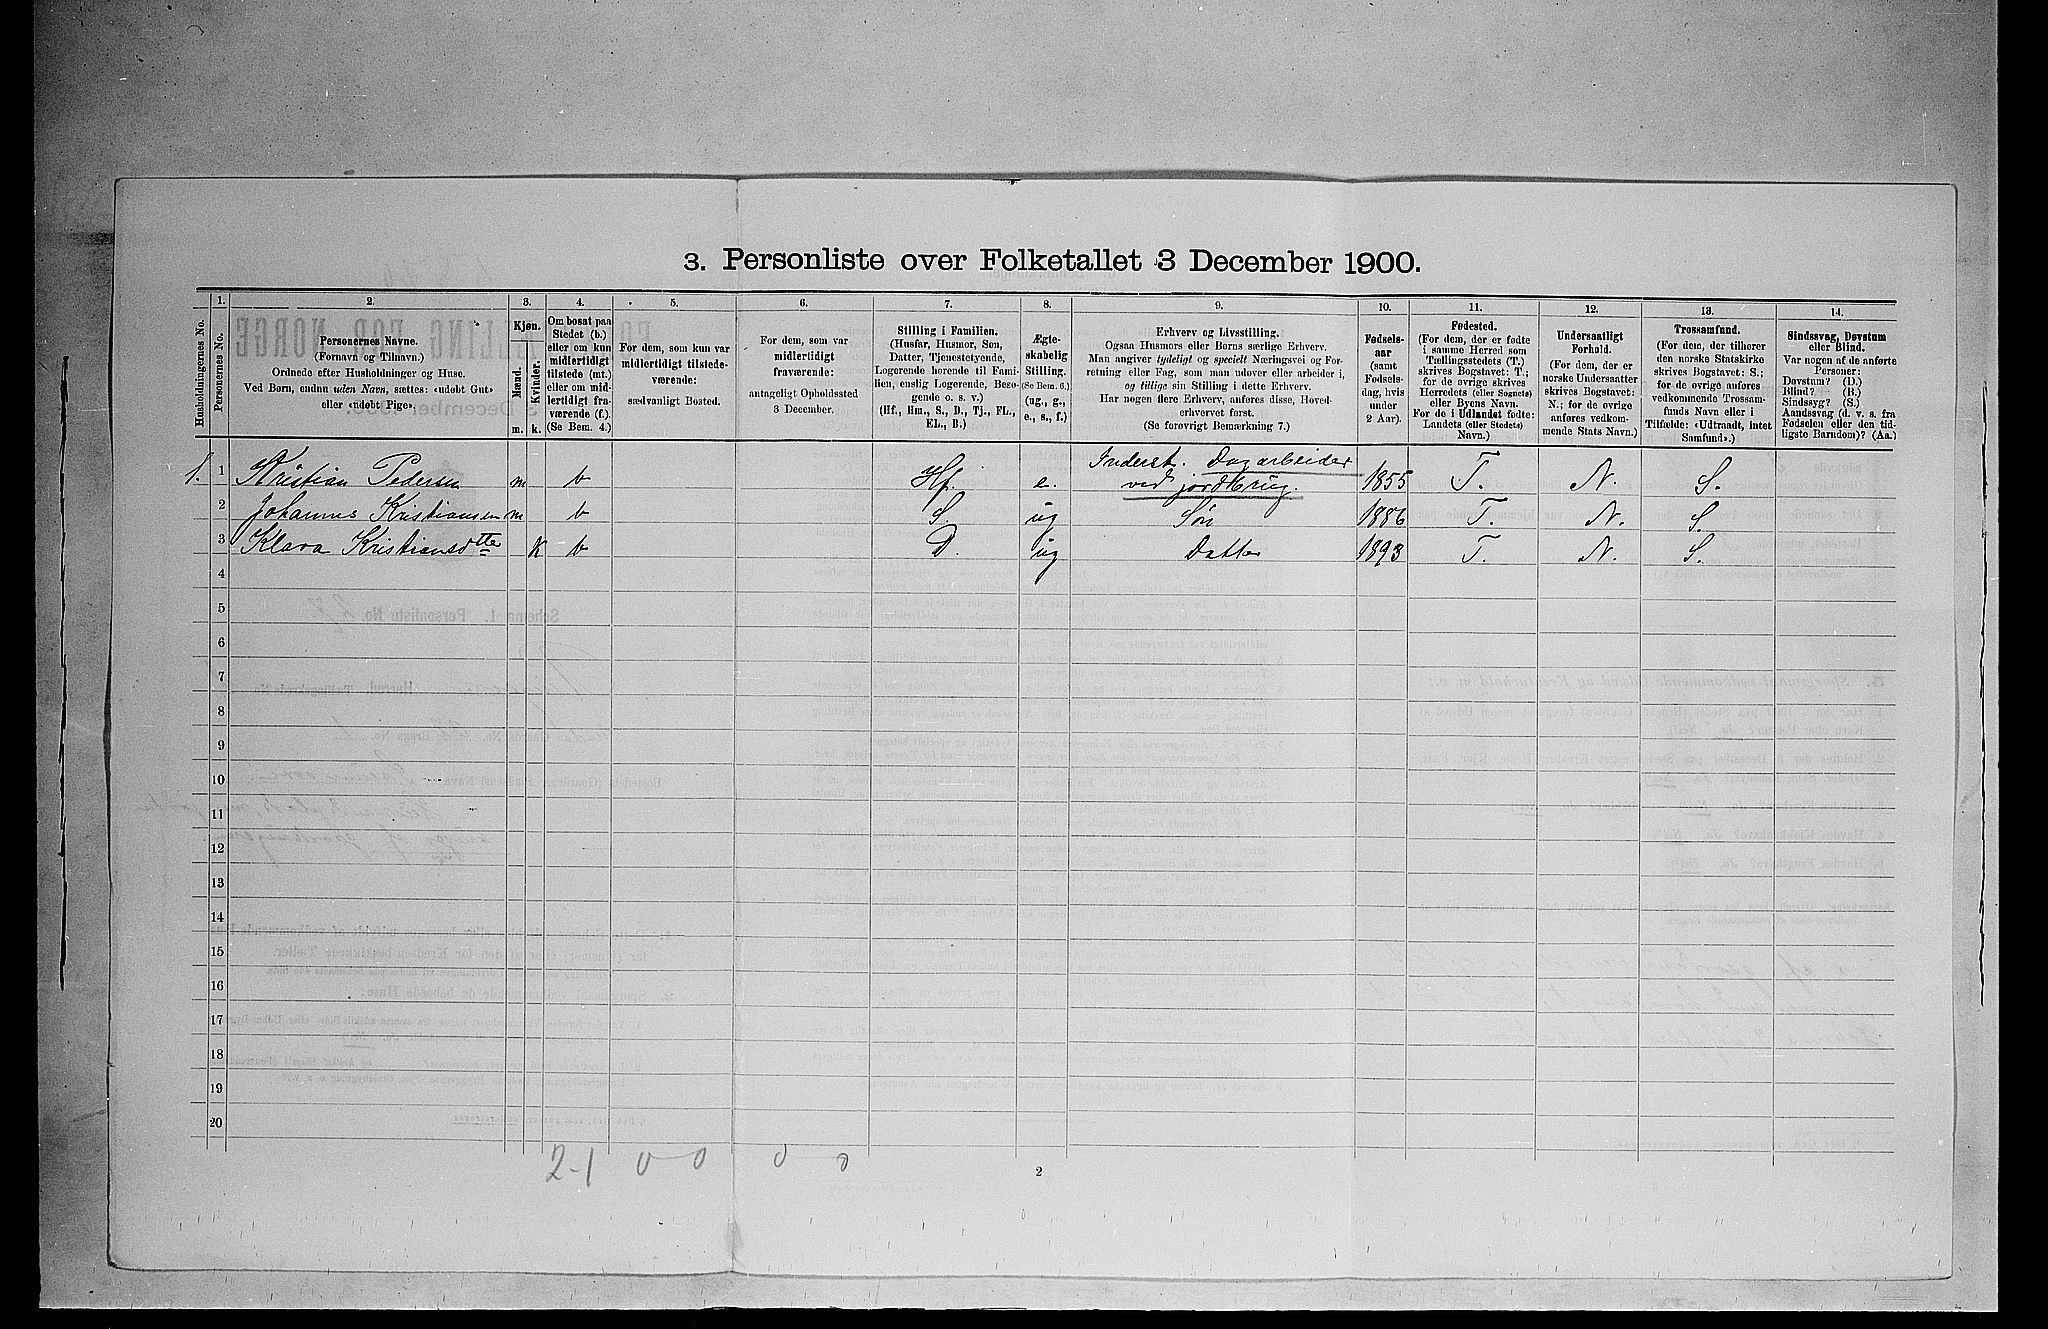 3. Personliste over Folketallet 3 December 1900.
Husholdningernes No.
1.
Personernes No.
2.
Personernes Navne.
(Fornavn og Tilnavn.)
Ordnede efter Husholdninger og Huse.
Ved Børn, endnu uden Navn, sættes: «udøbt Gut»
eller «udøbt Pige».
3.
Kjøn.
Mænd.
Kvinder.
m. k.
4.
Om bosat paa
Stedet (b.)
eller om kun
midlertidigt
tilstede (mt.)
eller om mid-
lertidigt fra-
værende (f.).
(Se Bem. 4.)
5.
For dem, som kun var
midlertidigt tilstede-
værende:
sædvanligt Bosted.
6.
For dem, som var
midlertidigt
fraværende:
antageligt Opholdssted
3 December.
7.
Stilling i Familien.
(Husfar, Husmor, Søn,
Datter, Tjenestetyende,
Logerende hørende til Fami-
lien, enslig Logerende, Besø-
gende o. s. v.)
(Hf., Hm., S., D., Tj., FL.,
EL., B.)
8.
Ægte-
skabelig
Stilling.
(Se Bem. 6.)
(ug., g.,
e., s., f.)
9.
Erhverv og Livsstilling.
Ogsaa Husmors eller Børns særlige Erhverv.
Man angiver tydeligt og specielt Næringsvei og For-
retning eller Fag, som man udøver eller arbeider i,
og tillige sin Stilling i dette Erhverv.
Har nogen flere Erhverv, anføres disse, Hoved-
erhvervet først.
(Se forøvrigt Bemærkning 7.)
10.
Fødsels-
aar
(samt
Fødsels-
dag, hvis
under
2 Aar).
11.
Fødested.
(For dem, der er fødte
i samme Herred som
Tællingsstedets (T.)
skrives Bogstavet: T.;
for de øvrige skrives
Herredets (eller Sognets)
eller Byens Navn.
For de i Udlandet fødte:
Landets (eller Stedets)
Navn.)
12.
Undersaatligt
Forhold.
(For dem, der er
norske Undersaatter
skrives Bogstavet:
N.; for de øvrige
anføres vedkom-
mende Stats Navn.)
13.
Trossamfund.
(For dem, der tilhører
den norske Statskirke
skrives Bogstavet: S.;
for de øvrige anføres
vedkommende Trossam-
funds Navn eller i
Tilfælde: «Udtraadt, intet
Samfund».)
14.
Sindssvag, Døvstum
eller Blind.
Var nogen af de anførte
Personer:
Døvstum? (D.)
Blind? (B.)
Sindssyg? (S.)
Aandssvag (d. v. s. fra
Fødselen eller den tid-
ligste Barndom)? (Aa.)
1. 1 Kristian Pedersen m b Hf. e. Inderst. Dagarbeider
ved jordbrug. 1855 T. N. S.
2 Johannes Kristiansen m b S. ug Søn 1886 T. N. S.
3 Klara Kristiansdtte k b D. ug Datter 1893 T. N. S.
4
5
6
7
8
9
10
11
12
13
14
15
16
17
18
19
20
2-1 0 0 0 0
2